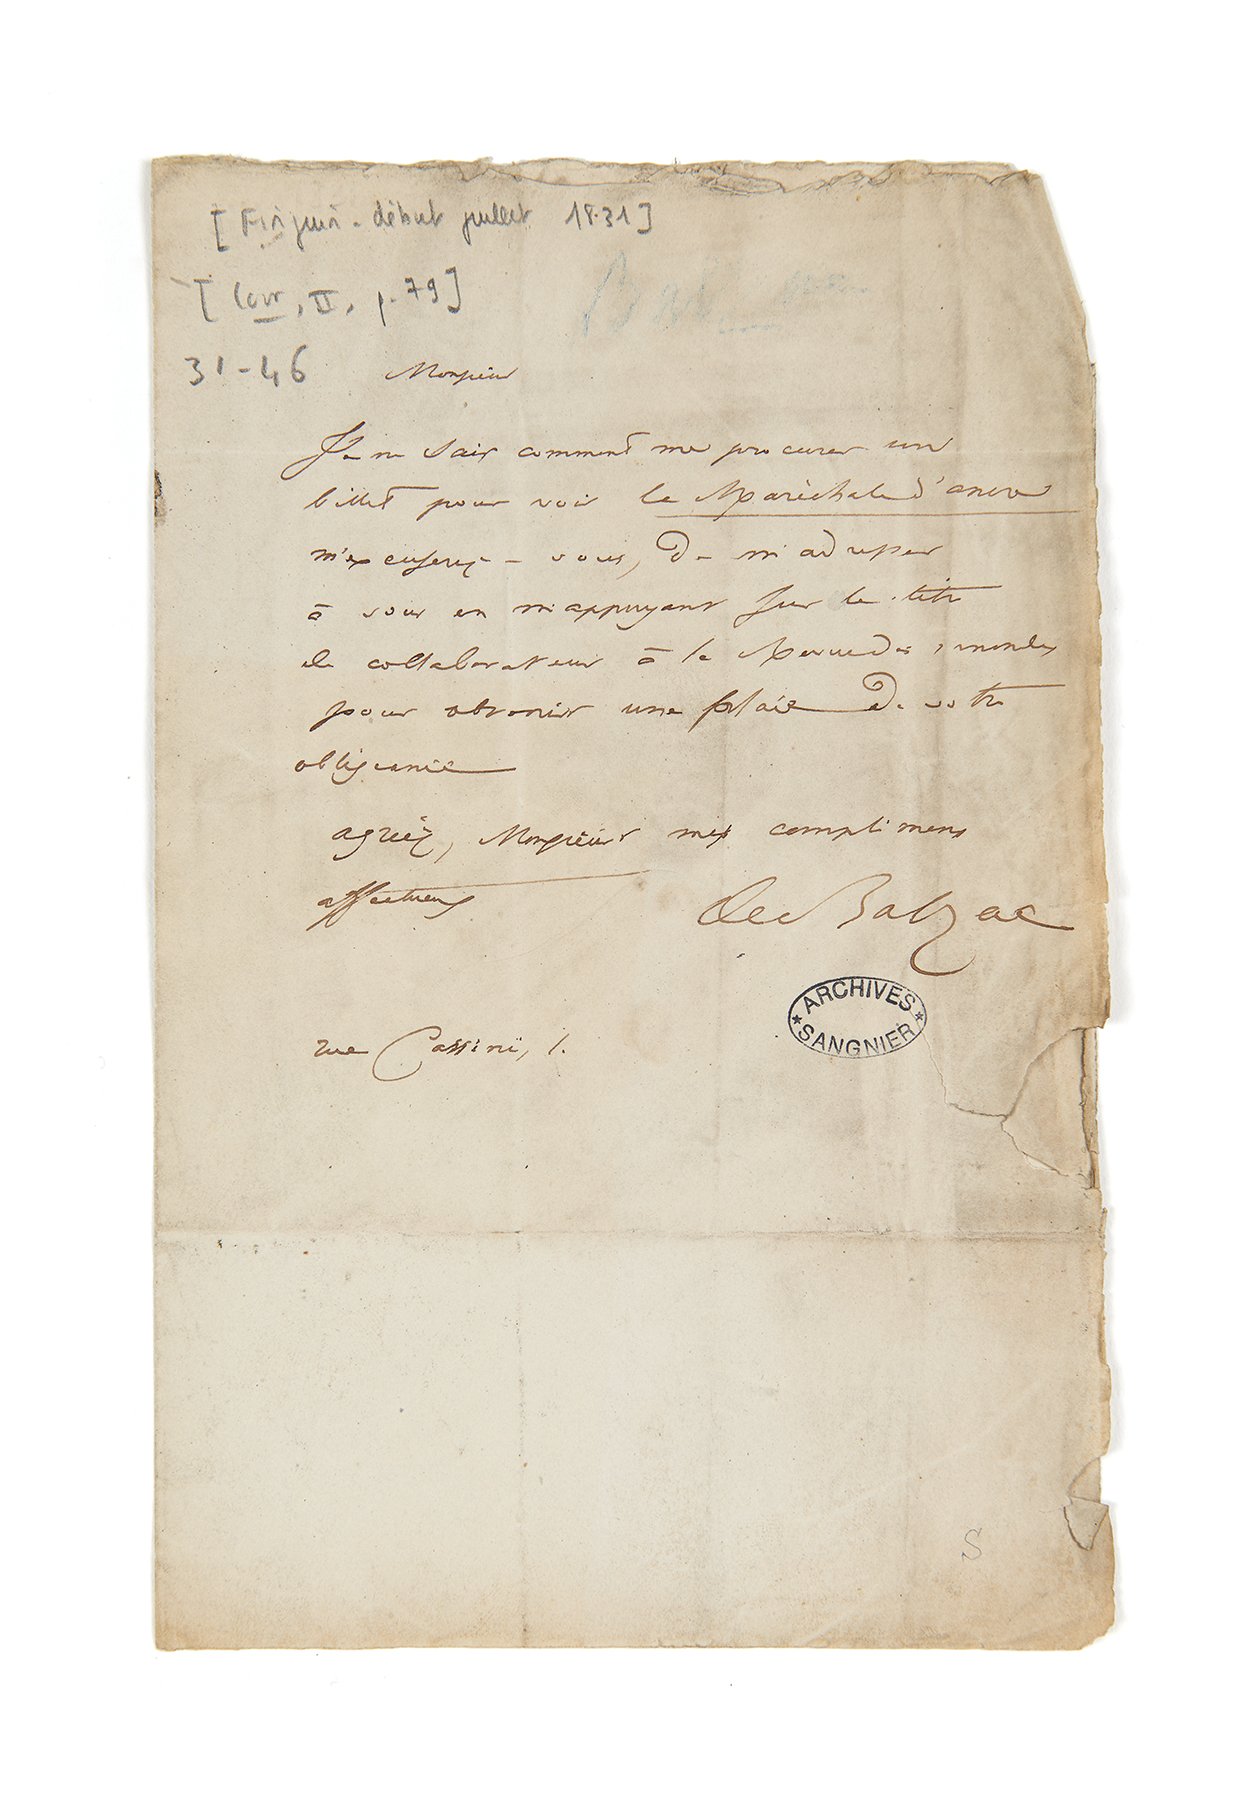 [Fin juin - début juillet 1831]
[Corr, II, p. 79]
31-46
Monsieur
Je ne sais comment me procurer un
billet pour voir la Maréchale d'ancre
m'excuserez-vous, de m'adresser
à vous en m'appuyant sur le titre
de collaborateur à la Revue des 2 mondes
pour obtenir une place de votre
obligeance
agréez, Monsieur mes complimens
affectueux
de Balzac
ARCHIVES
SANGNIER
rue Cassini, 1.
S